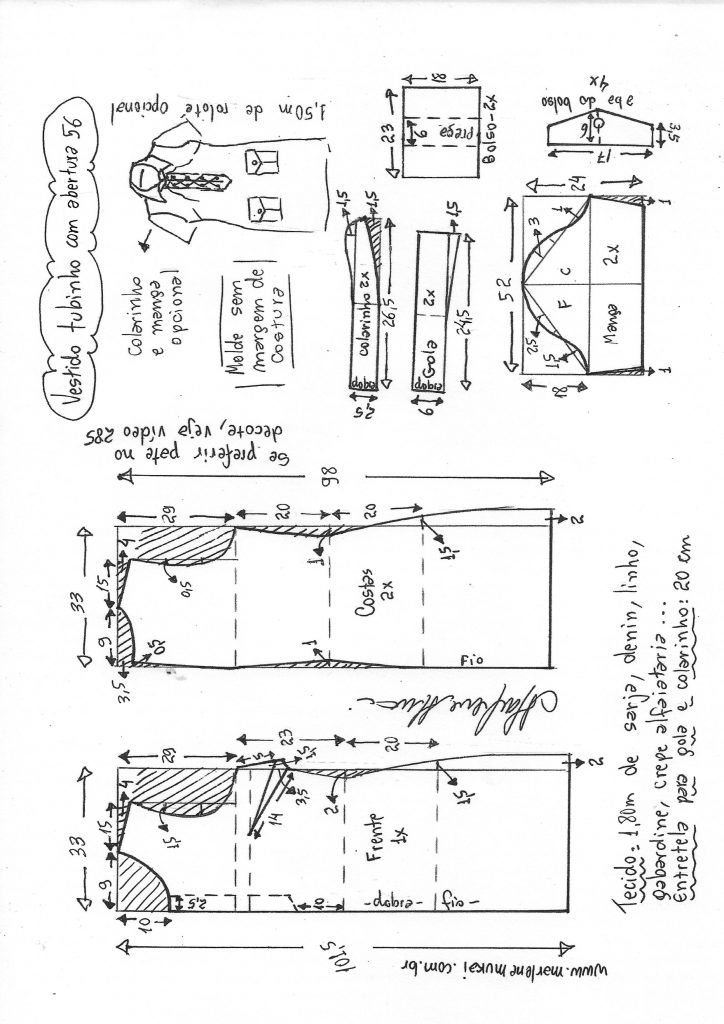 Vestido tubinho com abertura 56
1,50m de rolotê opcional
Colarinho
e manga
opcional
Molde sem
margem de
costura
23
18
6
Prega
Bolso-2x
aba do bolso
4x
6
17
3,5
1,5
1,5
colarinho 2x
dobra
26,5
2,5
1,5
Gola
2x
dobra
24,5
6
52
24
18
3
1
2,5
1,5
F
C
Manga
2x
1
1
Se preferir pate no
decote, veja vídeo 285
98
33
15
9
3,5
4
29
20
20
0,5
0,5
1
1
1,5
2
Costas
2x
Fio
33
15
9
10
4
29
23
20
5
1,5
1,5
14
3,5
2
1,5
2
2,5
10
Frente
1x
-dobra-
-fio-
101,5
www.marlenemukai.com.br
Tecido = 1,80m de sarja, denin, linho,
gabardine, crepe alfaiataria ...
Entretela para gola e colarinho: 20 cm